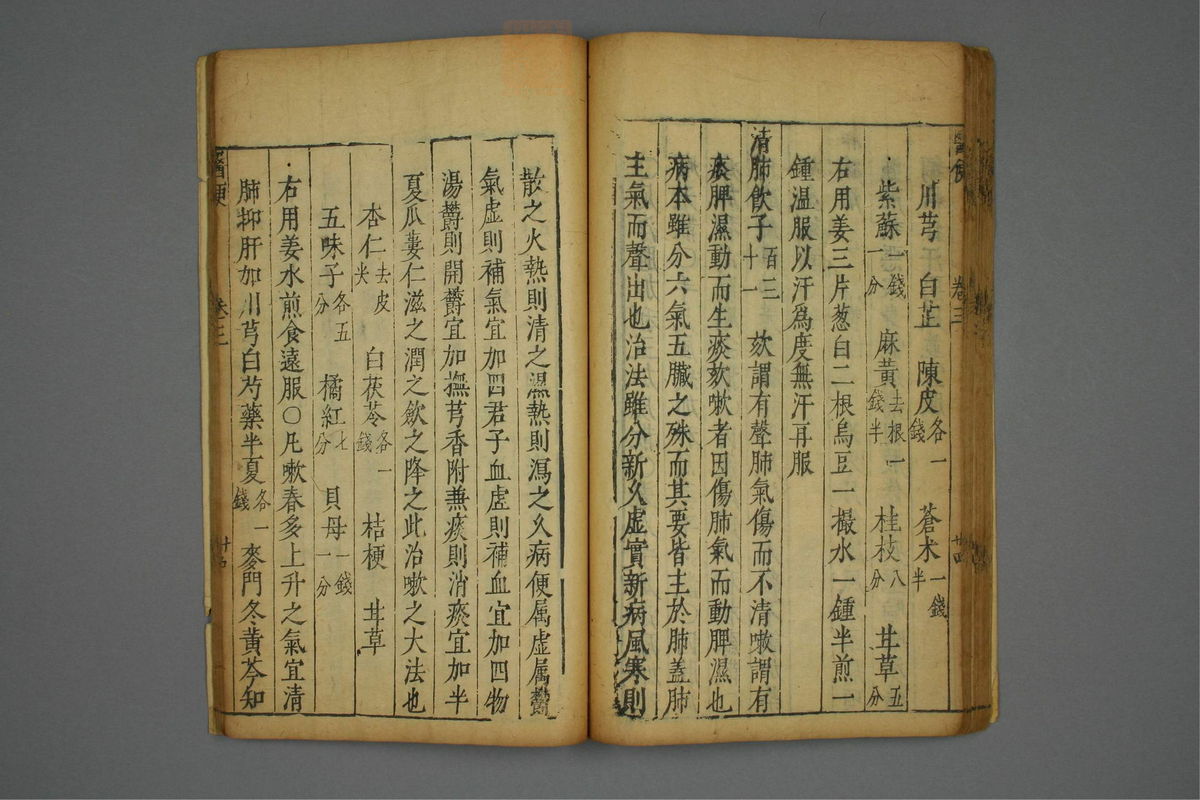 醫便 卷三 廿四
川芎 白芷 陳皮各一錢 蒼术一錢半
紫蘇一錢一分 麻黃去根一錢半 桂枝八分 甘草五分
右用姜三片葱白二根烏豆一撮水一鍾半煎一
鍾温服以汗爲度無汗再服
清肺飲子百三十一 欬謂有聲肺氣傷而不清嗽謂有
痰脾濕動而生痰欬嗽者因傷肺氣而動脾濕也
病本雖分六氣五臟之殊而其要皆主於肺盖肺
主氣而聲出也治法雖分新久虚實新病風寒則
散之火熱則清之濕熱則瀉之久病便属虚属欝
氣虚則補氣宜加四君子血虚則補血宜加四物
湯欝則開欝宜加撫芎香附兼痰則消痰宜加半
夏瓜蔞仁滋之潤之歛之降之此治嗽之大法也
杏仁去皮尖 白茯苓各一錢 桔梗 甘草
五味子各五分 橘紅七分 貝母一錢一分
右用姜水煎食遠服〇凡嗽春多上升之氣宜清
肺抑肝加川芎白芍藥半夏各一錢 麥門冬黄芩知
醫便 卷三 廿四